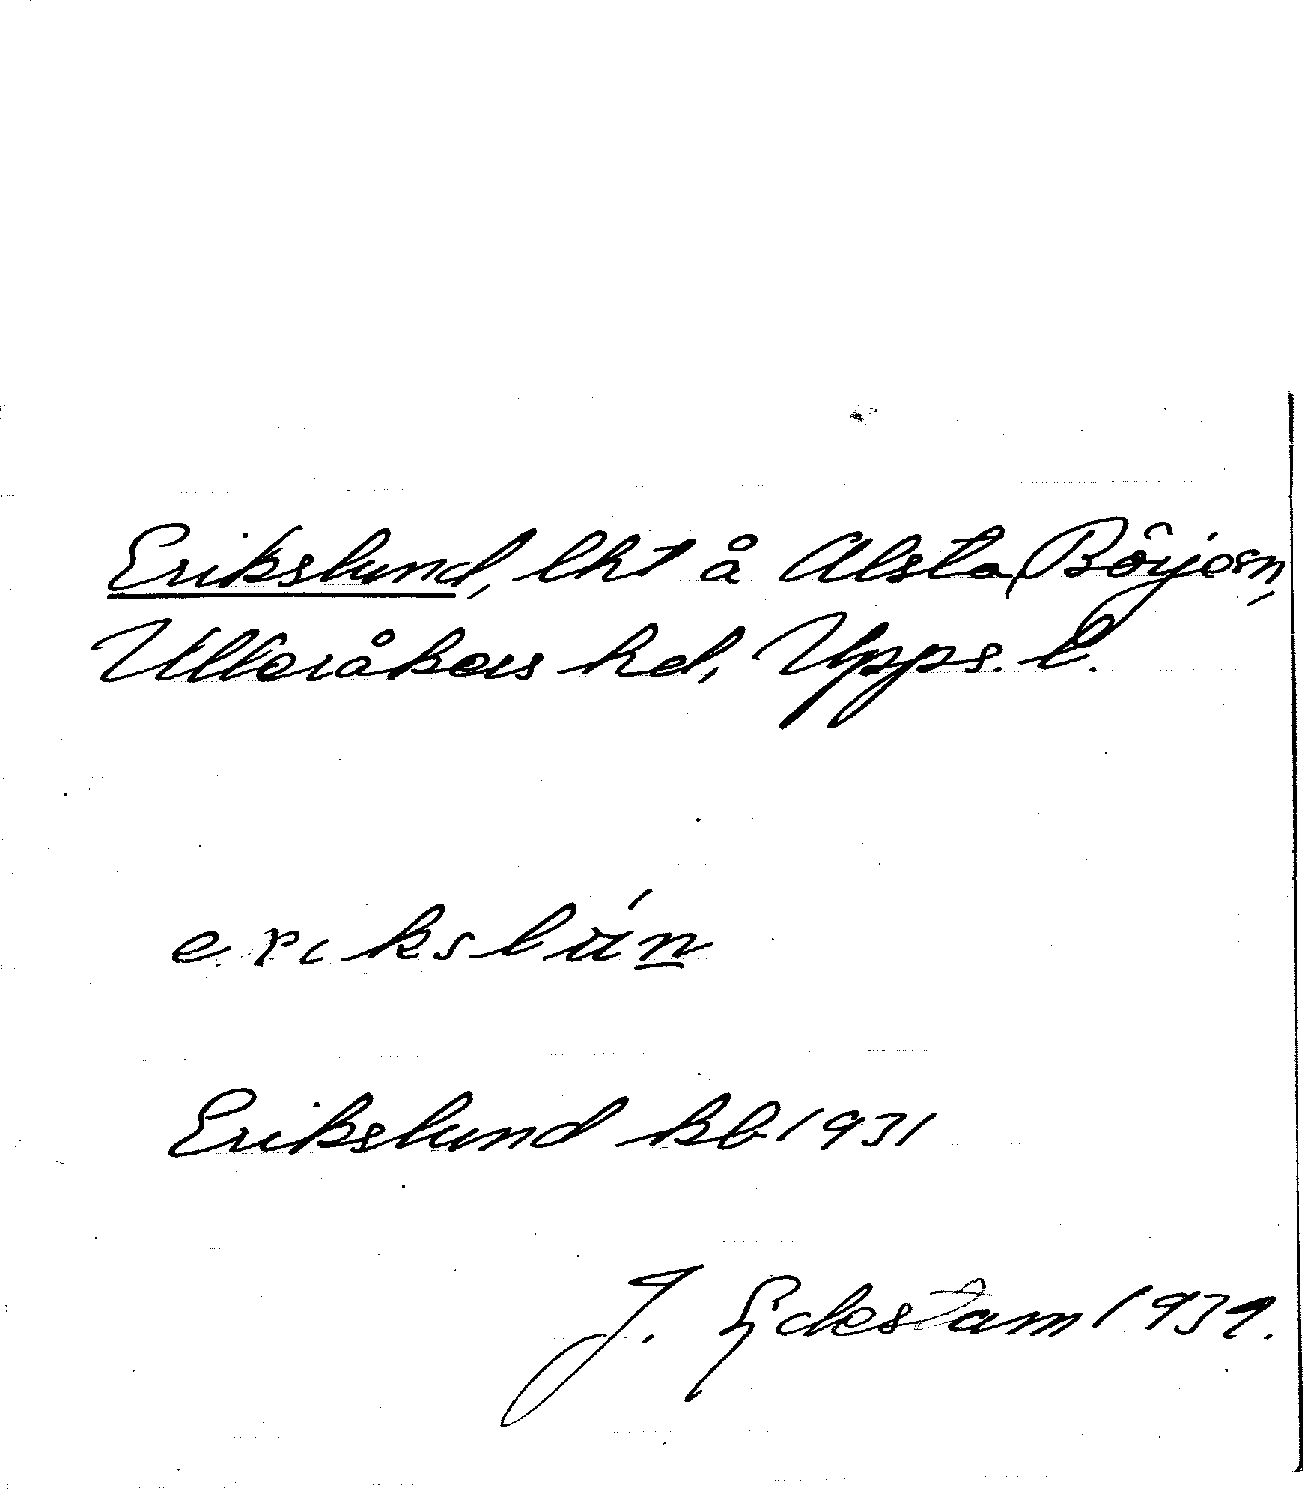 Erikslund, lht å Alsta, Börje sn,
Ulleråkers hd, Upps. l.
erikslún
Erikslund kb 1931
J. Eckestam 1939.